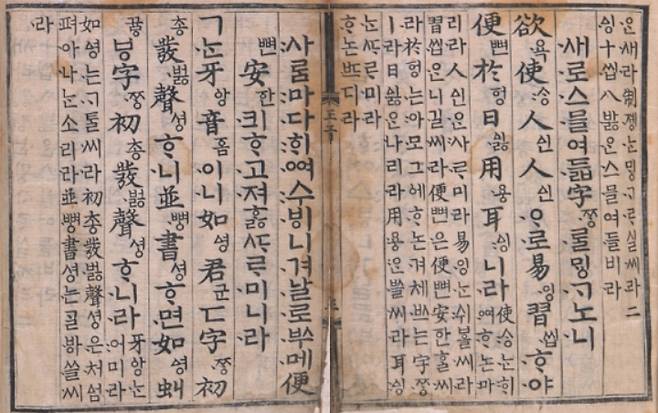 은 새라 制졩ᄂᆞᆫ ᄆᆡᇰᄀᆞᄅᆞ실씨라 二
ᅀᅵᆼ十씹八바ᇙ은 스믈여들비라
새로 스믈여듧字ᄍᆞᆼᄅᆞᆯ ᄆᆡᇰᄀᆞ노니
欲욕使ᄉᆞᆼ人ᅀᅵᆫ人ᅀᅵᆫᄋᆞ로 易잉習씹ᄒᆞ야
便뼌於ᅙᅥᆼ日ᅀᅵᇙ用용耳ᅀᅵᆼ니라
使ᄉᆞᆼᄂᆞᆫ ᄒᆡ
ᅇᅧ ᄒᆞ논 마
리라 人ᅀᅵᆫᄋᆞᆫ 사ᄅᆞ미라 易잉ᄂᆞᆫ 쉬ᄫᅳᆯ씨라
習씹은 니길씨라 便뼌은 便뼌安한ᄒᆞᆯ씨
라 於ᅙᅥᆼ는 아모그ᅌᅦ ᄒᆞ논 겨체 ᄡᅳ는 字ᄍᆞᆼ
ㅣ라 日ᅀᅵᇙ은 나리라 用용은 ᄡᅳᆯ씨라 耳ᅀᅵᆼ
ᄂᆞᆫ ᄯᆞᄅᆞ미라
ᄒᆞ논 ᄠᅳ디라
사ᄅᆞᆷ마다 ᄒᆡᅇᅧ 수ᄫᅵ 니겨 날로 ᄡᅮ메 便
뼌安한킈 ᄒᆞ고져 ᄒᆞᇙ ᄯᆞᄅᆞ미니라
ㄱᄂᆞᆫ 牙ᅌᅡᆼ音ᅙᅳᆷ이니 如ᅀᅧᆼ君군ㄷ字ᄍᆞᆼ初
총發버ᇙ聲셔ᇰᄒᆞ니 並뼝書셩ᄒᆞ면 如ᅀᅧᆼ虯
뀨ᇢㆆ字ᄍᆞᆼ初총發버ᇙ聲셔ᇰᄒᆞ니라
牙ᅌᅡᆼᄂᆞᆫ
어미라
如ᅀᅧᆼ는 ᄀᆞᄐᆞᆯ씨라 初총發버ᇙ聲셔ᇰ은 처ᅀᅥᆷ
펴아 나ᄂᆞᆫ 소리라 並뼝書셩는 ᄀᆞᆯᄫᅡ 쓸씨
라